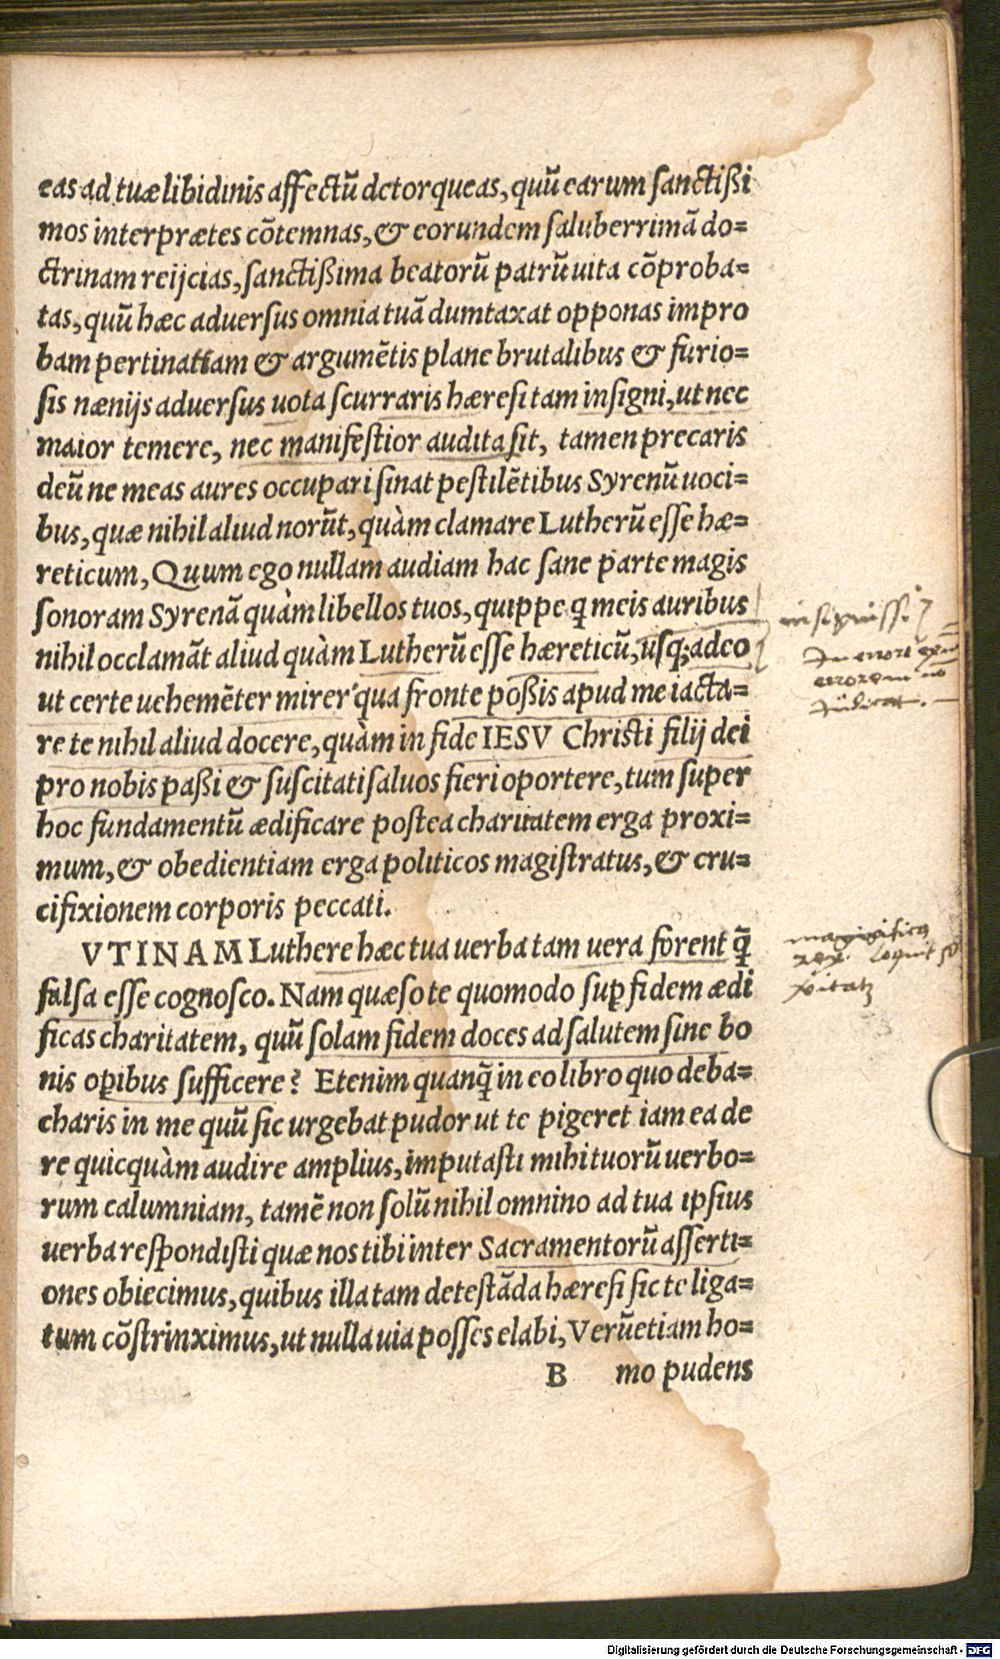 eas ad tuæ libidinis affectũ detorqueas, quũ earum sanctißi
mos interprætes cõtemnas, & eorundem saluberrimã do=
ctrinam reijcias, sanctißima beatorũ patrũ uita cõproba=
tas, quũ hæc aduersus omnia tuã dumtaxat opponas impro
bam pertinatiam & argumẽtis plane brutalibus & furio=
sis nænijs aduersus uota scurraris hæresi tam insigni, ut nec
maior temere, nec manifestior audita sit, tamen precaris
deũ ne meas aures occupari sinat pestilẽtibus Syrenũ uoci=
bus, quæ nihil aliud norũt, quàm clamare Lutherũ esse hæ=
reticum, Quum ego nullam audiam hac sane parte magis
sonoram Syrenã quàm libellos tuos, quippe q̃ meis auribus
nihil occlamãt aliud quàm Lutherũ esse hæreticũ, usq; adeo
ut certe uehemẽter mirer qua fronte poßis apud me iacta=
re te nihil aliud docere, quàm in fide IESV Christi filij dei
pro nobis paßi & suscitati saluos fieri oportere, tum super
hoc fundamentũ ædificare postea charitatem erga proxi=
mum, & obedientiam erga politicos magistratus, & cru=
cifixionem corporis peccati.
VTINAM Luthere hæc tua uerba tam uera forent q̃
falsa esse cognosco. Nam quæso te quomodo suꝑ fidem ædi
ficas charitatem, quũ solam fidem doces ad salutem sine bo
nis oꝑibus sufficere? Etenim quanq̃ in eo libro quo deba=
charis in me quũ sic urgebat pudor ut te pigeret iam ea de
re quicquàm audire amplius, imputasti mihi tuorũ uerbo=
rum calumniam, tamẽ non solũ nihil omnino ad tua ipsius
uerba respondisti quæ nos tibi inter Sacramentorũ asserti=
ones obiecimus, quibus illa tam detestãda hæresi sic te liga=
tum cõstrinximus, ut nulla uia posses elabi, Verũ etiam ho=
B mo pudens
Digitalisierung gefördert durch die Deutsche Forschungsgemeinschaft - DFG